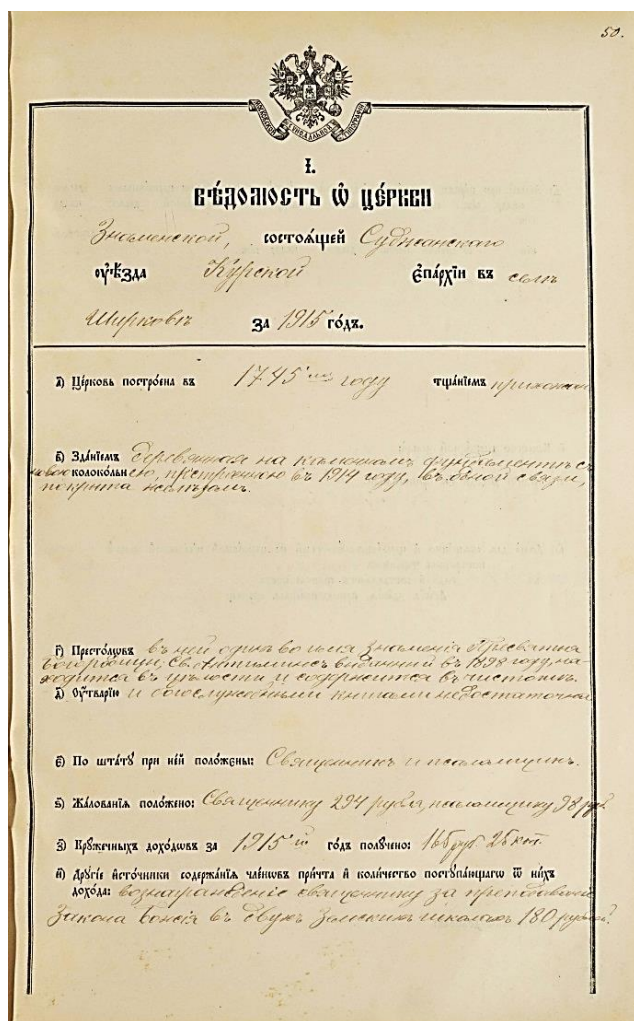 50.
І.
ВѢ́ДОМОСТЬ Ѡ҆ ЦЕ́РКВИ
Знаменской, состоѧ́щей Суджанскаго
оу҆ѣ́зда Курской є҆па́рхїи въ селѣ
Ширковѣ за 1915 го́дъ.
а҃) Це́рковь постро́ена въ 1745мъ году тща́нїемъ прихожан
в҃) Зда́нїемъ деревянная на каменномъ фундаментѣ с
новою колоко́льнею, пристроенною въ 1914 году, въ одной связи,
покрыта желѣзомъ.
г҃) Престо́лѡвъ въ ней одинъ во имя Знаменія Пресвятыя
Богородицы; Св. Антиминсъ выданный въ 1898 году, на-
ходится въ цѣлости и содержится въ чистотѣ.
д҃) Оу҆́тварїю и богослужебными книгами недостаточна
є҃) По шта́тꙋ при не́й поло́жены: Священникъ и псаломщикъ.
ѕ҃) Жа́лованїѧ поло́жено: Священнику 294 рубля, псаломщику 98 руб.
з҃) Крꙋ́жечныхъ дохо́дѡвъ за 1915й го́дъ полꙋ́чено: 166 руб 25 коп.
и҃) Дрꙋгі́е и҆сто́чники содержа́нїѧ чле́нѡвъ при́чта и҆ коли́чество постꙋпа́ющагѡ ѿ ни́хъ
дохо́да: вознагражденіе священнику за преподаваніе
Закона Божія въ двухъ Земскихъ школахъ 180 рублей.